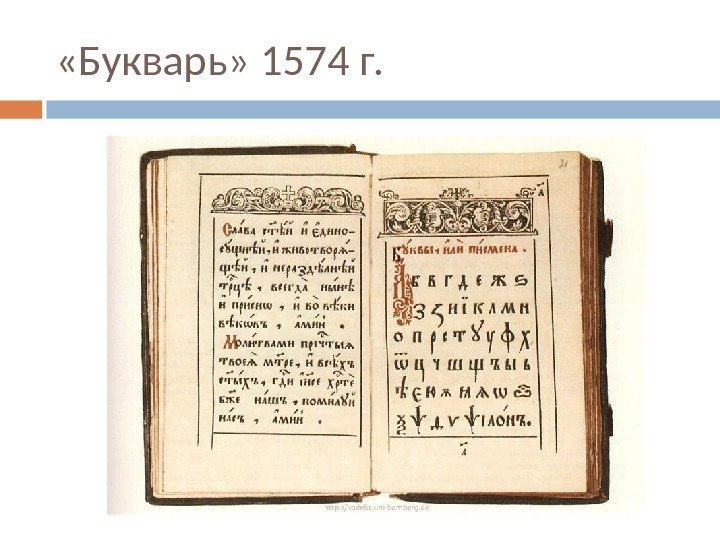 «Букварь» 1574 г.
Сла́ва ст҃ѣ́й и҆ є҆дино-
су́щнѣй, и҆ животворѧ́-
щѣй, и҆ нераздѣ́лнѣй
трⷪ҇цѣ, всегда̀ ны́нѣ
и҆ при́снѡ, и҆ во вѣ́ки
вѣкѡ́въ, а҆ми́нь.
Моли́твами пречⷭ҇тыѧ
твоеѧ̀ мт҃ре, и҆ всѣ́хъ
ст҃ы́хъ, гдⷭ҇и і҆с҃е хрⷭ҇тѐ
бж҃е на́шъ, поми́лꙋй
на́съ, а҆ми́нь.
Бꙋ́квы, и҆лѝ пи́смена.
А Б В Г Д Е Ж Ѕ
З И І К Л М Н
О П Р С Т Ꙋ У Ф Х
Ѿ Ц Ч Ш Щ Ъ Ы Ь
Ѣ Є Ю Ѫ Ѧ Ѡ
Ѯ Ѱ
http://kodeks.uni-bamberg.de